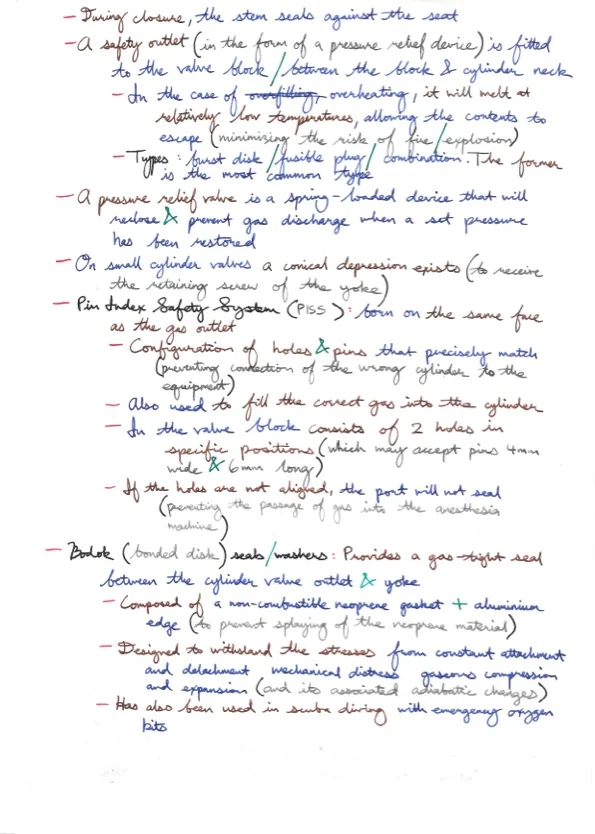 - During closure, the stem seals against the seat
- A safety outlet (in the form of a pressure relief device) is fitted
to the valve block / between the block & cylinder neck
- In the case of overfilling, overheating, it will melt at
relatively low temperatures, allowing the contents to
escape (minimizing the risk of fire/explosion)
- Types: burst disk / fusible plug / combination. The former
is the most common type
- A pressure relief valve is a spring-loaded device that will
reclose & prevent gas discharge when a set pressure
has been restored
- On small cylinder valves a conical depression exists (to receive
the retaining screw of the yoke)
- Pin Index Safety System (PISS): born on the same face
as the gas outlet
- Configuration of holes & pins that precisely match
(preventing connection of the wrong cylinder to the
equipment)
- Also used to fill the correct gas into the cylinder
- In the valve block consists of 2 holes in
specific positions (which may accept pins 4mm
wide & 6mm long)
- If the holes are not aligned, the port will not seal
(preventing the passage of gas into the anesthesia
machine)
- Bodok (bonded disk) seals/washers: Provides a gas-tight seal
between the cylinder valve outlet & yoke
- Composed of a non-combustible neoprene gasket + aluminium
edge (to prevent splaying of the neoprene material)
- Designed to withstand the stresses from constant attachment
and detachment mechanical distress gaseous compression
and expansion (and its associated adiabatic changes)
- Has also been used in scuba diving with emergency oxygen
kits